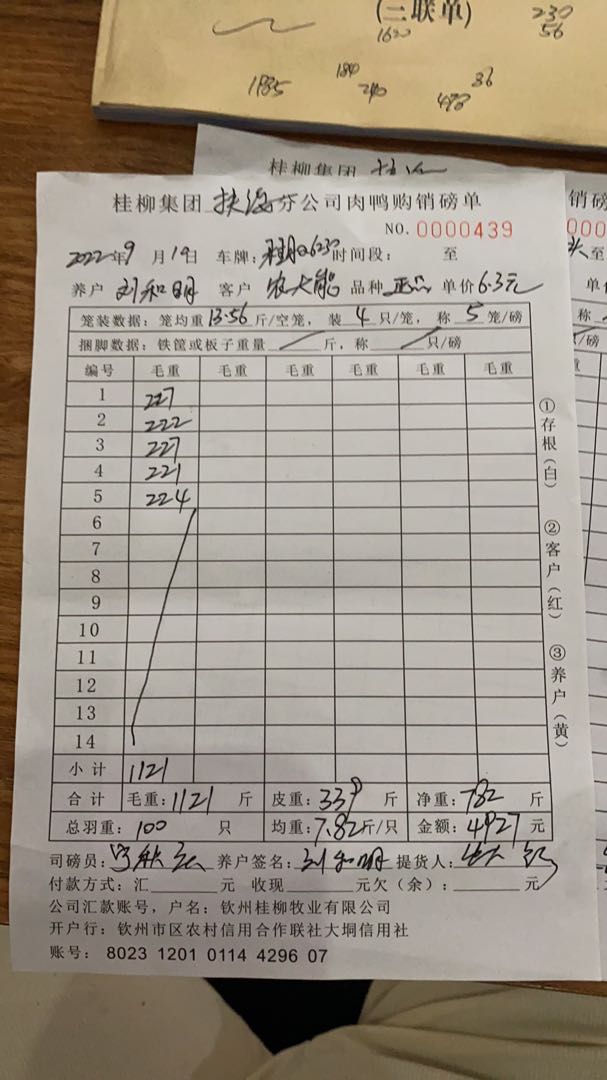 (三联单)
1620
230
56
1185
184
240
36
桂柳集团
桂柳集团 分公司肉鸭购销磅单
销磅
NO. 0000439
000
2022年9月19日 车牌: 时间段: 至
至
养户 刘和明 客户 农大能 品种 正品 单价 6.3元
单价
笼装数据: 笼均重 13.56 斤/空笼, 装 4 只/笼, 称 5 笼/磅
捆脚数据: 铁筐或板子重量 斤, 称 只/磅
编号 毛重 毛重 毛重 毛重 毛重 毛重
1 227
2 222
3 227
4 221
5 224
6
7
8
9
10
11
12
13
14
小计 1121
合计 毛重: 1121 斤 皮重: 339 斤 净重: 782 斤
总羽重: 100 只 均重: 7.82斤/只 金额: 4927 元
①存根(白) ②客户(红) ③养户(黄)
司磅员: 养户签名: 刘和明 提货人:
付款方式: 汇 元 收现 元欠(余): 元
公司汇款账号, 户名: 钦州桂柳牧业有限公司
开户行: 钦州市区农村信用合作联社大垌信用社
账号: 8023 1201 0114 4296 07